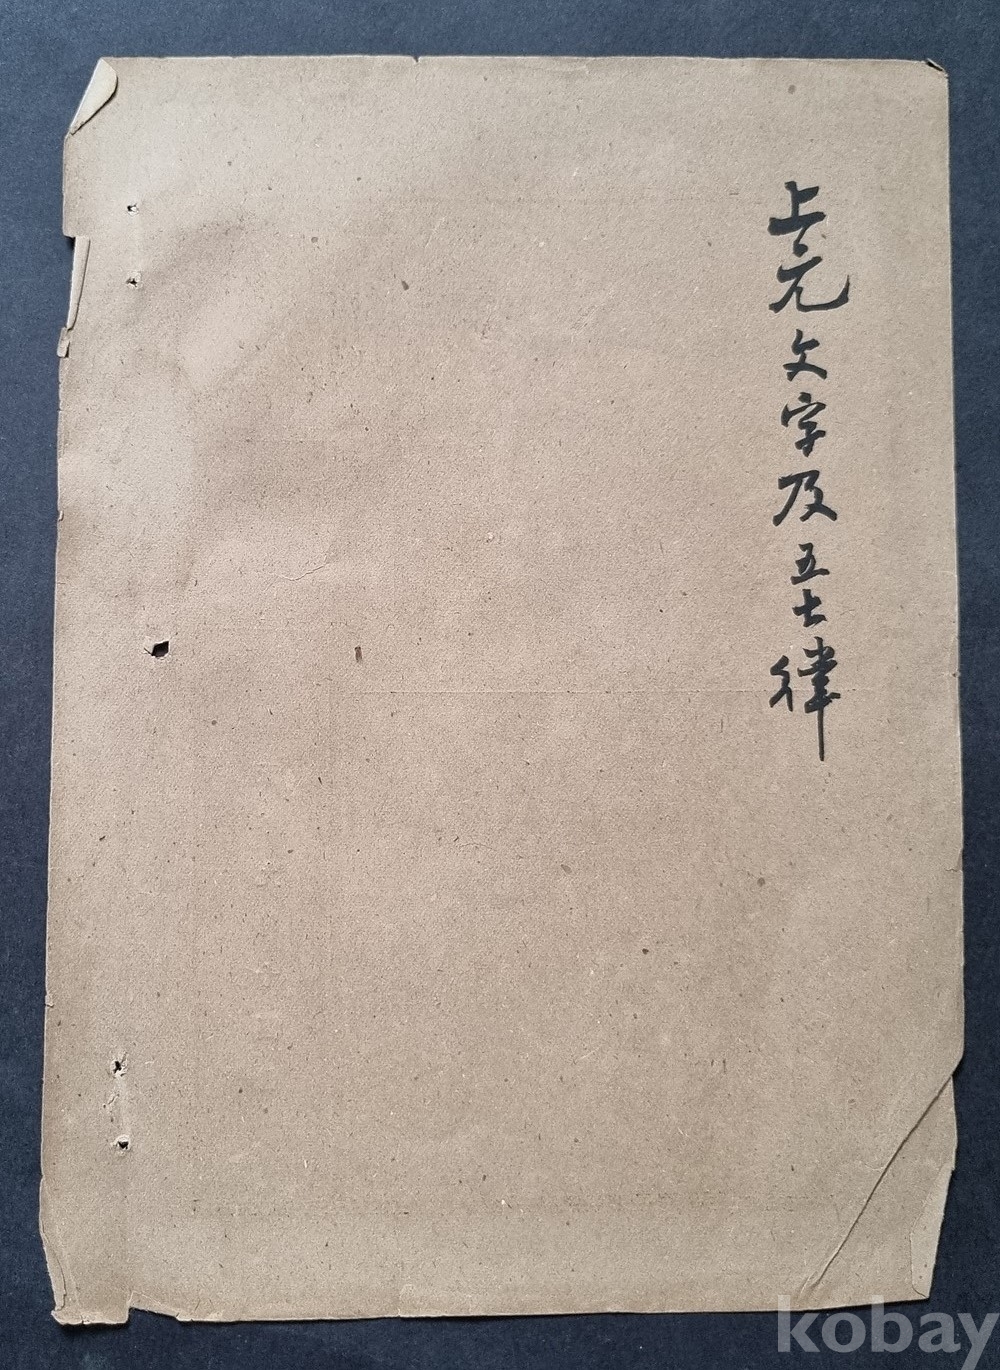 上元文字及五七律
kobay